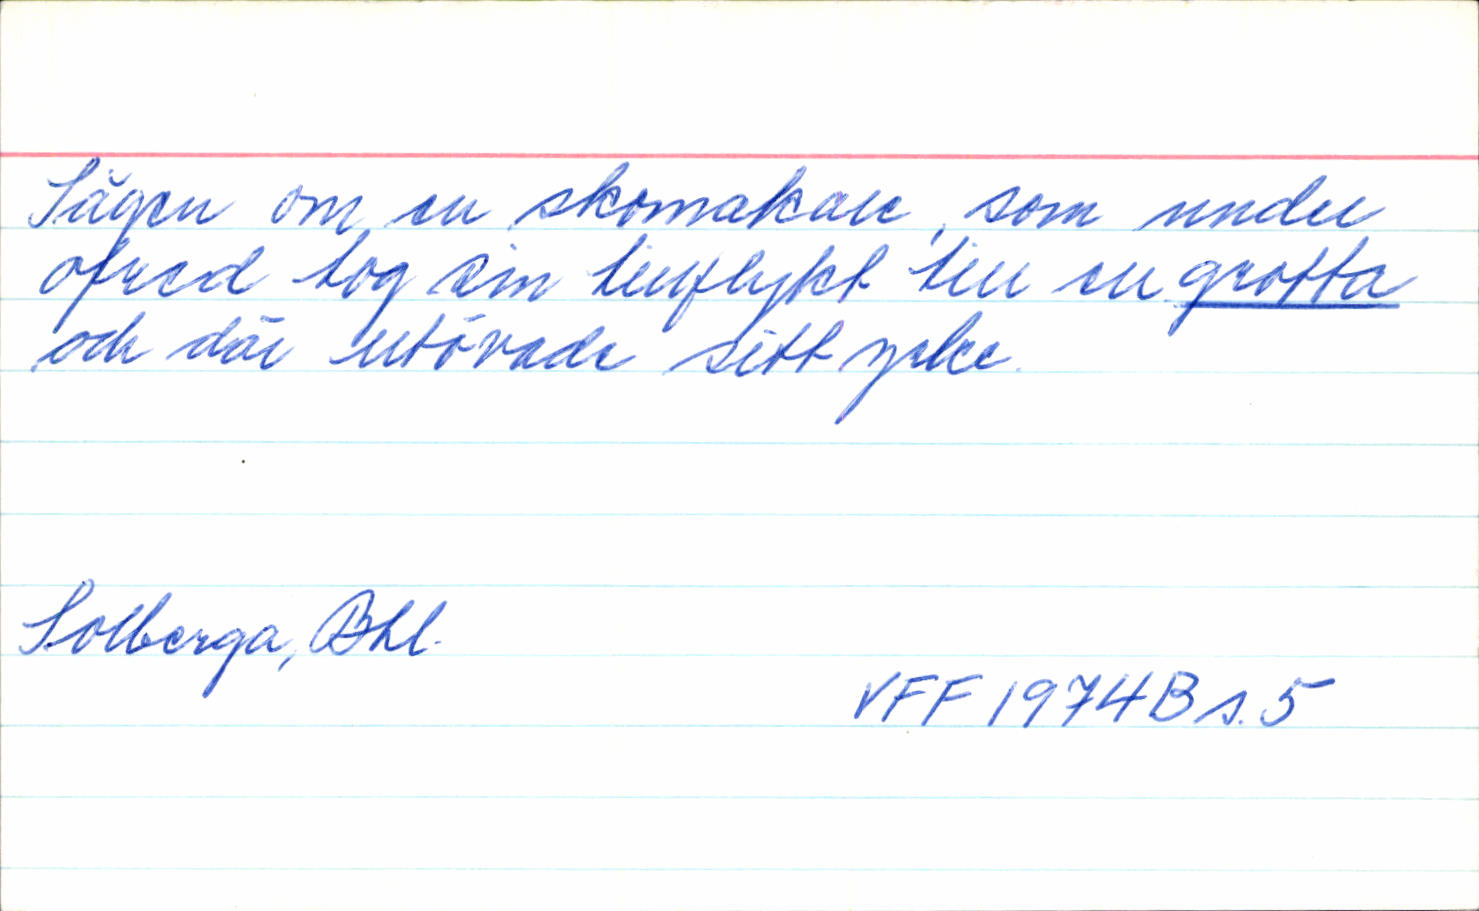 Sägen om en skomakare, som under
ofred tog sin tillflykt till en grotta
och där utövade sitt yrke.
Solberga, Bhl.
VFF 1974 B s. 5